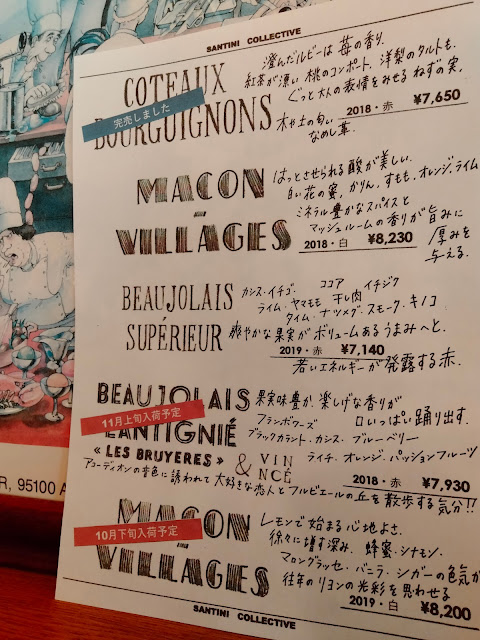 SANTINI COLLECTIVE
COTEAUX
BOURGUIGNONS
完売しました
澄んだルビーは 苺の香り.
紅茶が漂い 桃のコンポート. 洋梨のタルトも.
ぐっと大人の表情をみせる ねずの実.
木や土の匂い
なめし革.
2018・赤 ¥7,650
MACON
–
VILLAGES
はっとさせられる酸が美しい.
白い花の蜜. かりん. すもも. オレンジ. ライム
ミネラル豊かなスパイスと
マッシュルームの香りが旨みに
厚みを
与える.
2018・白 ¥8,230
BEAUJOLAIS
SUPÉRIEUR
カシス・イチゴ. ココア イチジク
ライム・ヤマモモ 干し肉
タイム・ナツメグ・スモーク・キノコ
爽やかな果実がボリュームあるうまみへと.
2019・赤 ¥7,140
若いエネルギーが発露する赤.
BEAUJOLAIS
LANTIGNIÉ
11月上旬入荷予定
« LES BRUYERES » & VIN
NCÉ
果実味豊か. 楽しげな香りが
フランボワーズ 口いっぱい踊り出す.
ブラックカラント・カシス・ブルーベリー
ライチ. オレンジ. パッションフルーツ
2018・赤 ¥7,930
アコーディオンの音色に誘われて 大好きな恋人とフルピエールの丘を散歩する気分!!
MACON
–
VILLAGES
10月下旬入荷予定
レモンで始まる心地よさ.
徐々に増す深み. 蜂蜜・シナモン.
マロングラッセ・バニラ・シガーの色気が
往年のリヨンの光彩を思わせる
2019・白 ¥8,200
SANTINI COLLECTIVE
R, 95100 A